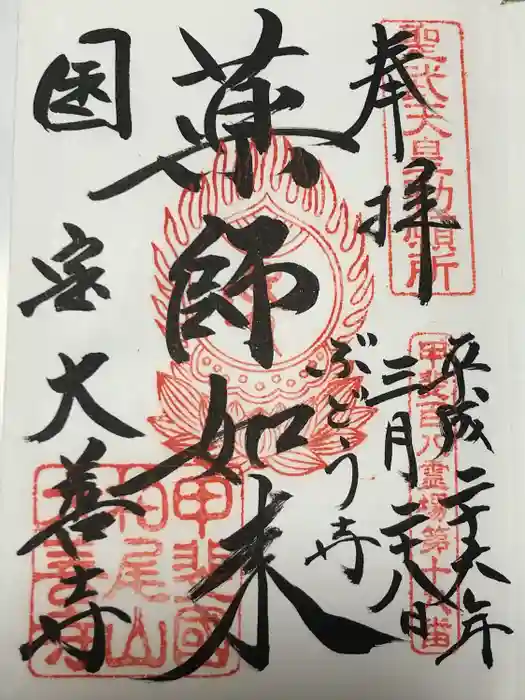 聖武天皇勅願所
奉拝
甲斐百八霊場第十
平成二十六年
三月二十八日
ぶどう寺
薬師如来
国宝大善寺
甲斐國
柏尾山
大善寺